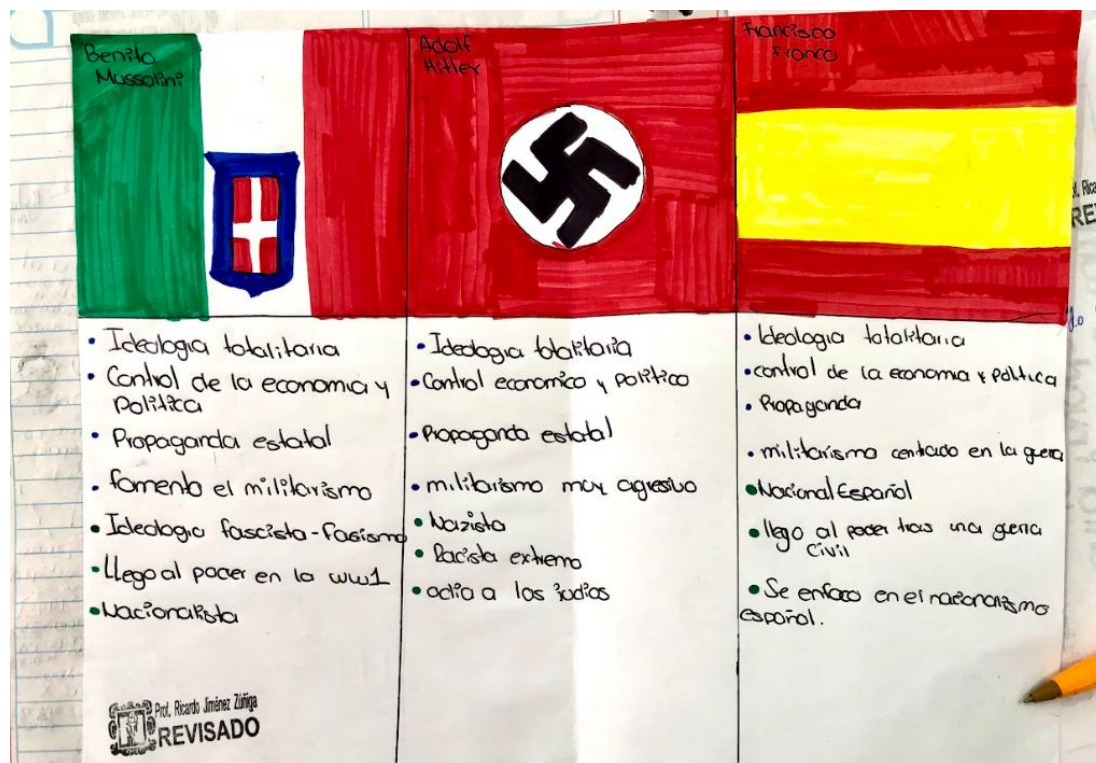 Benito
Mussolini
Ideologia totalitaria
Control de la economia y
Politica
Propaganda estatal
fomento el militarismo
Ideologia fascista-Fasismo
Llego al poder en la ww1
Nacionalista
Prof. Ricardo Jiménez Zúñiga
REVISADO
Adolf
Hitler
Ideologia totalitaria
Control economico y politico
Propaganda estatal
militarismo muy agresivo
Nazista
Racista extremo
odia a los judios
Francisco
Franco
Ideologia totalitaria
control de la economia y politica
Propaganda
militarismo centrado en la guerra
Nacional Español
llego al poder tras una guerra
Civil
Se enfoco en el nacionalismo
español.